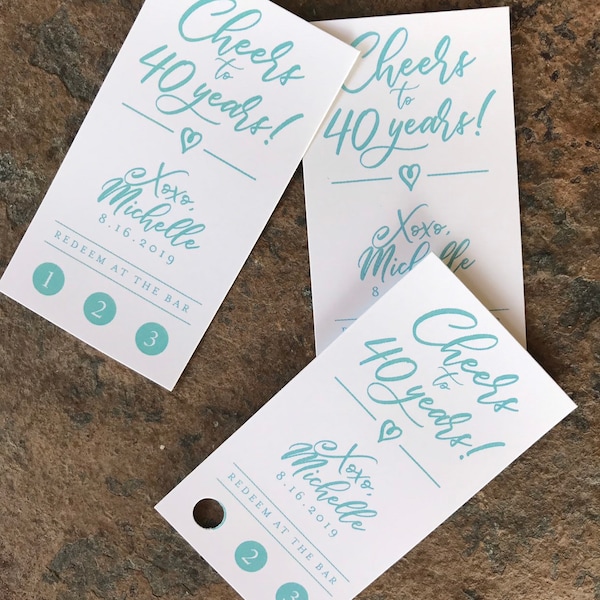 Cheers
to
40 years!
Xoxo,
Michelle
8.16.2019
REDEEM AT THE BAR
1 2 3
Cheers
to
40 years!
Xoxo,
Michelle
8
RE
Cheers
to
40 years!
Xoxo,
Michelle
8.16.2019
REDEEM AT THE BAR
2 3